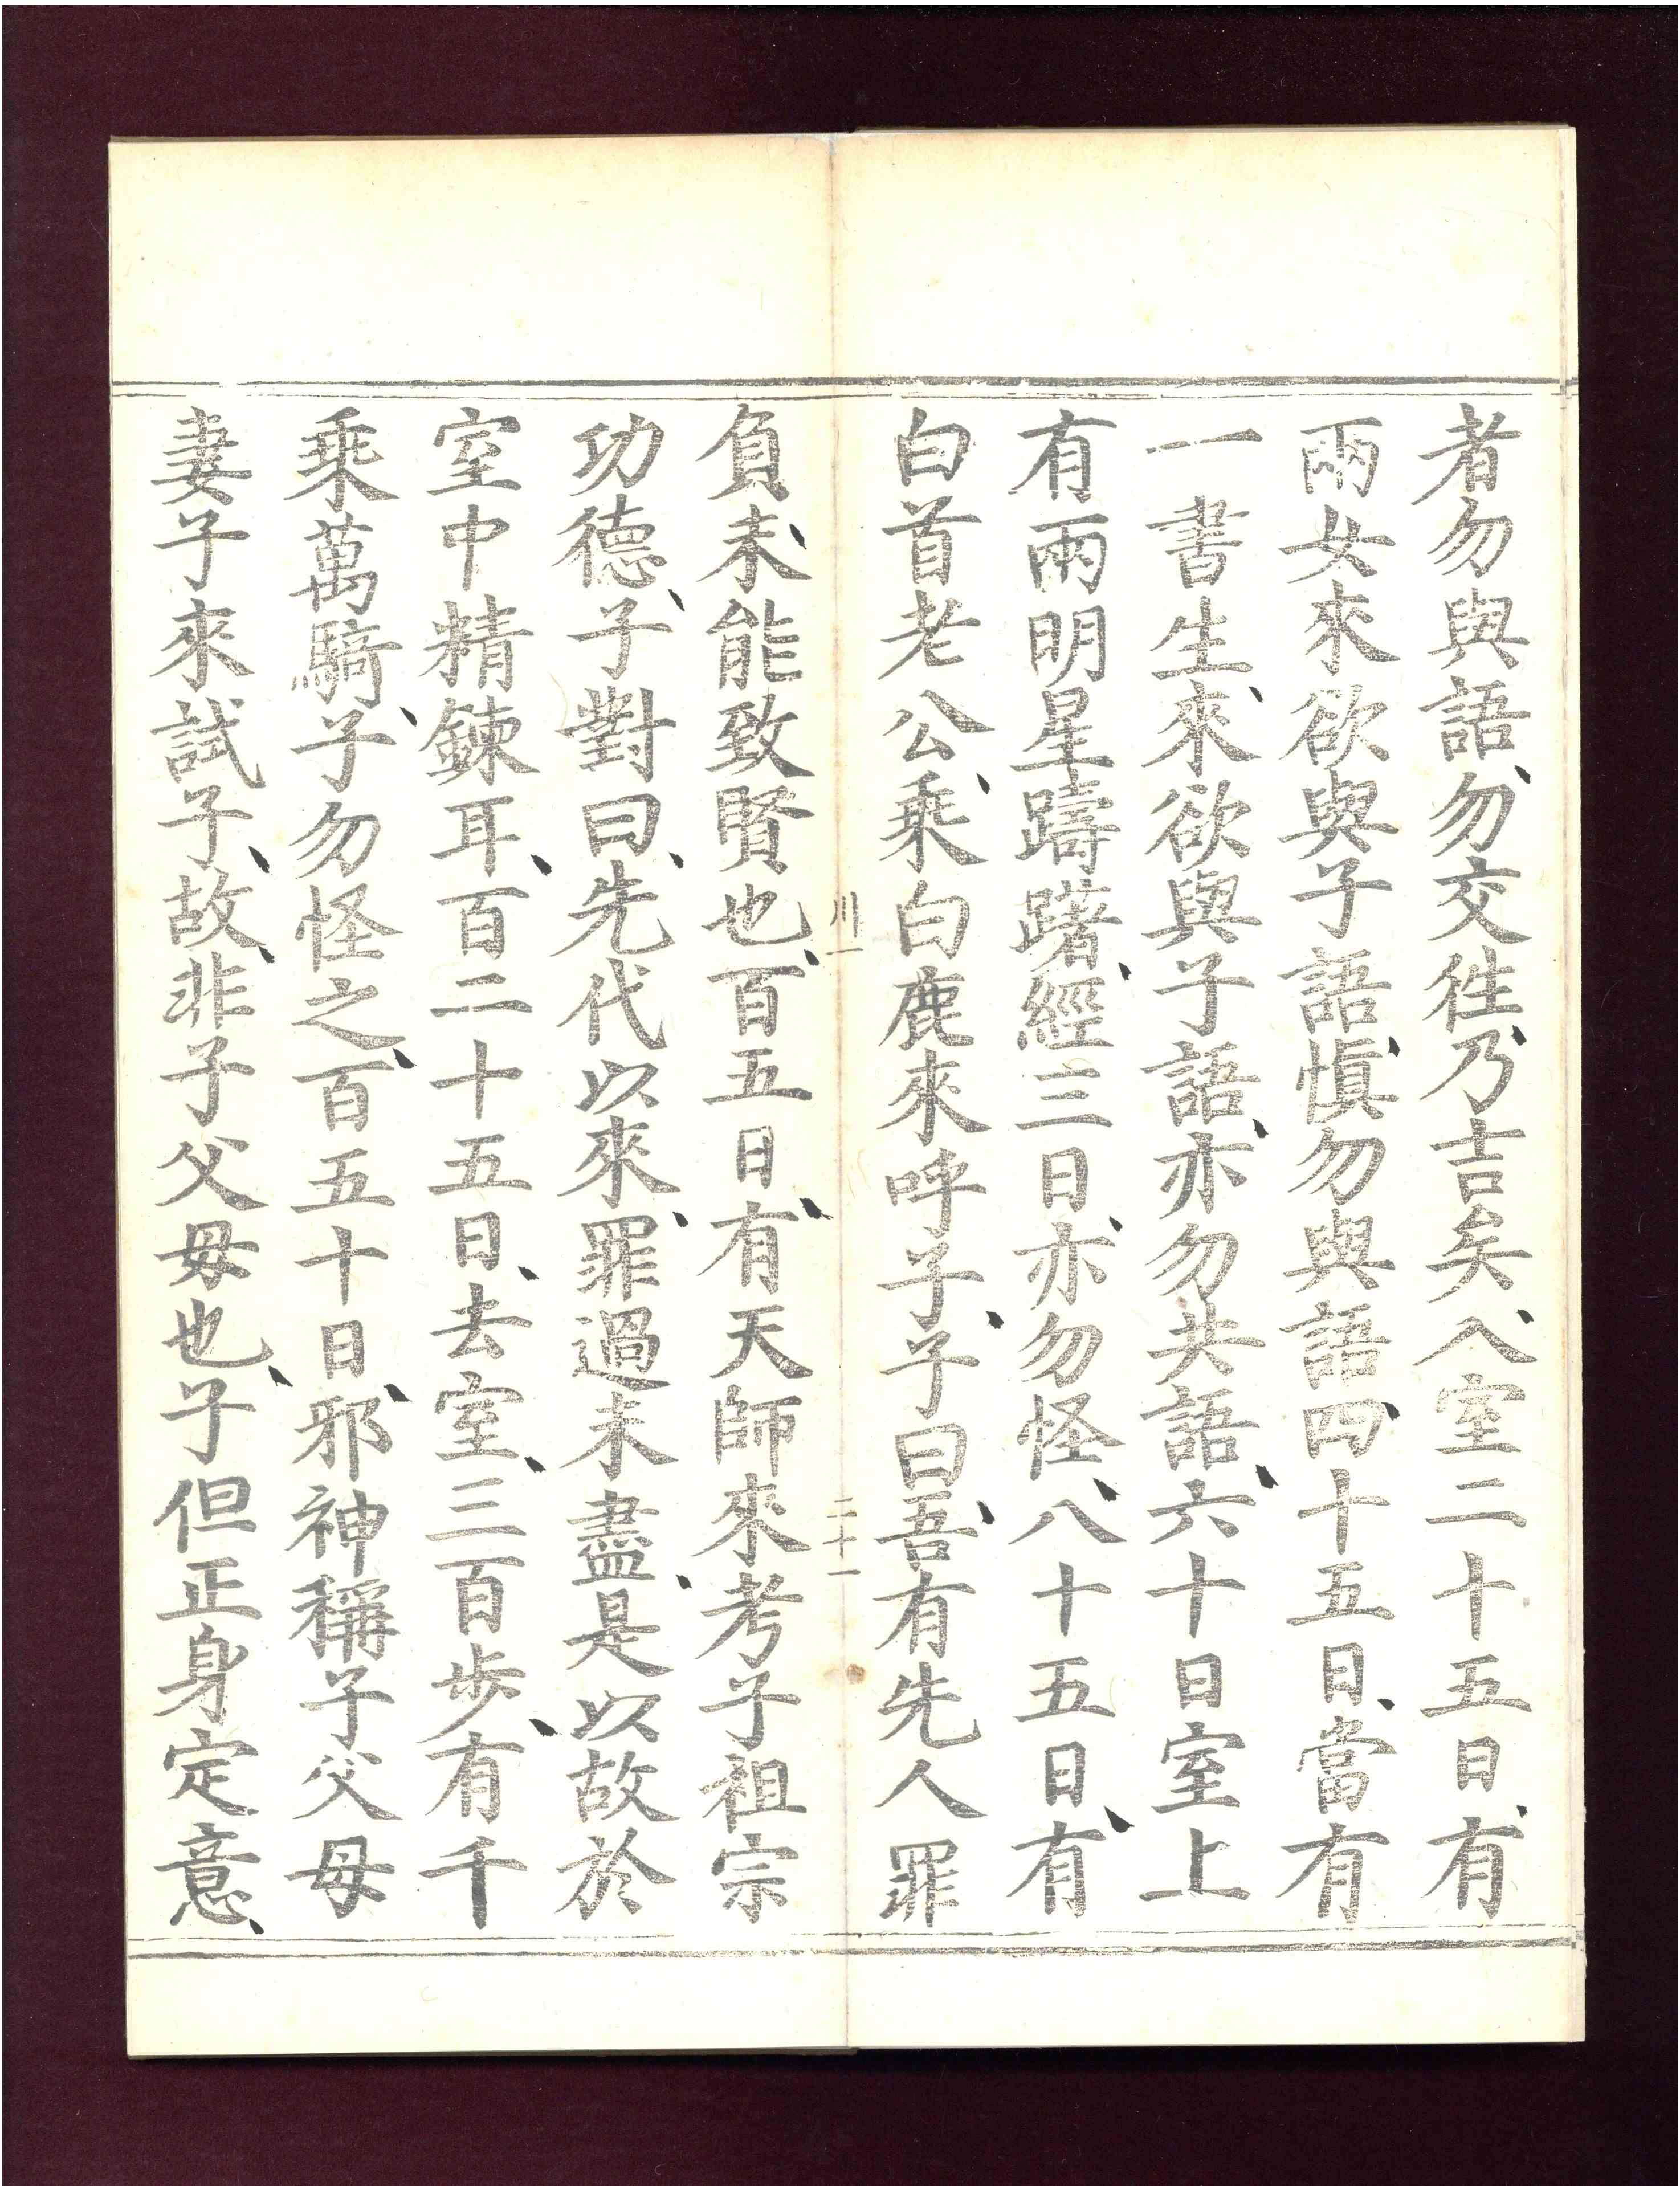 者勿與語勿交徃乃吉矣入室二十五日有
兩女來欲與子語慎勿與語四十五日當有
一書生來欲與子語亦勿共語六十日室上
有兩明星躊躇經三日亦勿怪八十五日有
白首老公乘白鹿來呼子子曰吾有先人罪
川一 二十一
負未能致賢也百五日有天師來考子祖宗
功德子對曰先代以來罪過未盡是以故於
室中精鍊耳百二十五日去室三百步有千
乘萬騎子勿怪之百五十日邪神稱子父母
妻子來試子故非子父母也子但正身定意